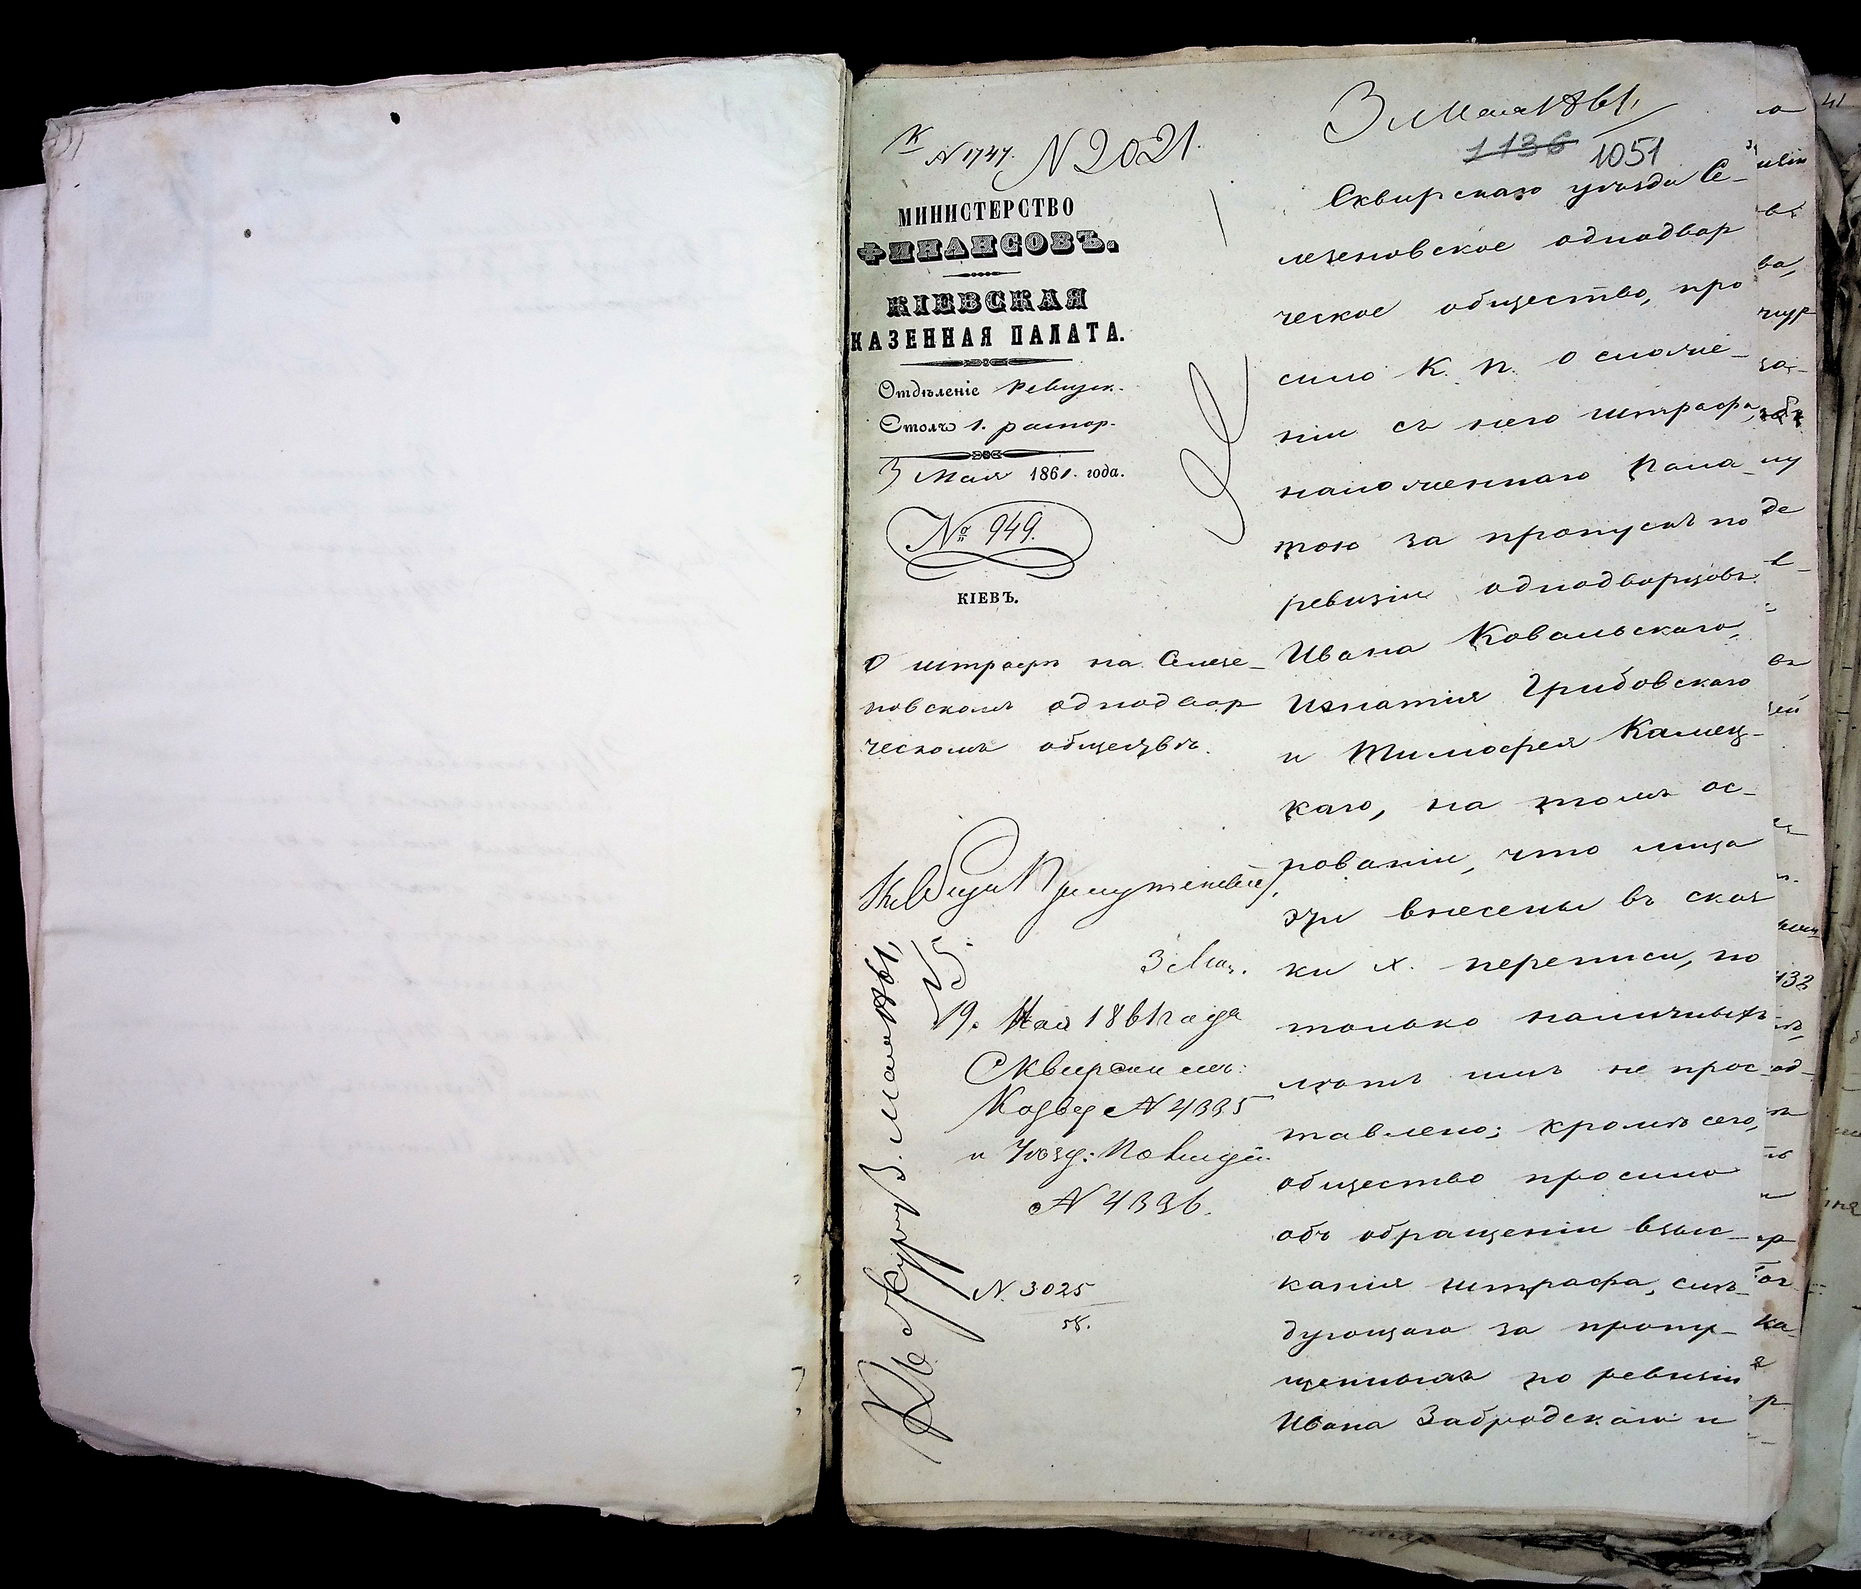 N 1747. N 2021.
МИНИСТЕРСТВО
ФИНАНСОВЪ.
КІЕВСКАЯ
КАЗЕННАЯ ПАЛАТА.
Отдѣленіе Ревизск.
Столъ 1. распор.
3 Мая 1861. года.
№ 949.
КІЕВЪ.
О штрафѣ на Селезе-
новскомъ однодвор
ческомъ обществѣ.
3 Мая.
19. Мая 1861 года
Сквирским:
N 4335
и Уѣзд: Полиціи
N 4336.
N. 3025
58.
3 Мая 1861,
1136 1051
Сквирскаго уѣзда Се-
лезеновское однодвор
ческое общество, про
сило К. П. о сложе-
ніи съ него штрафа,
наложеннаго Пала-
тою за пропускъ по
ревизіи однодворцовъ
Ивана Ковальскаго,
Игнатія Грибовскаго
и Тимофея Камец-
каго, на томъ ос-
нованіи, что лица
эти внесены въ сказ
ки X. переписи, но
только наличныхъ
лѣтъ имъ не прос-
тавлено; кромѣ сего,
общество просило
объ обращеніи взыс-
канія штрафа, слѣ-
дующаго за пропу-
щенныхъ по ревизіи
Ивана Забродскаго и